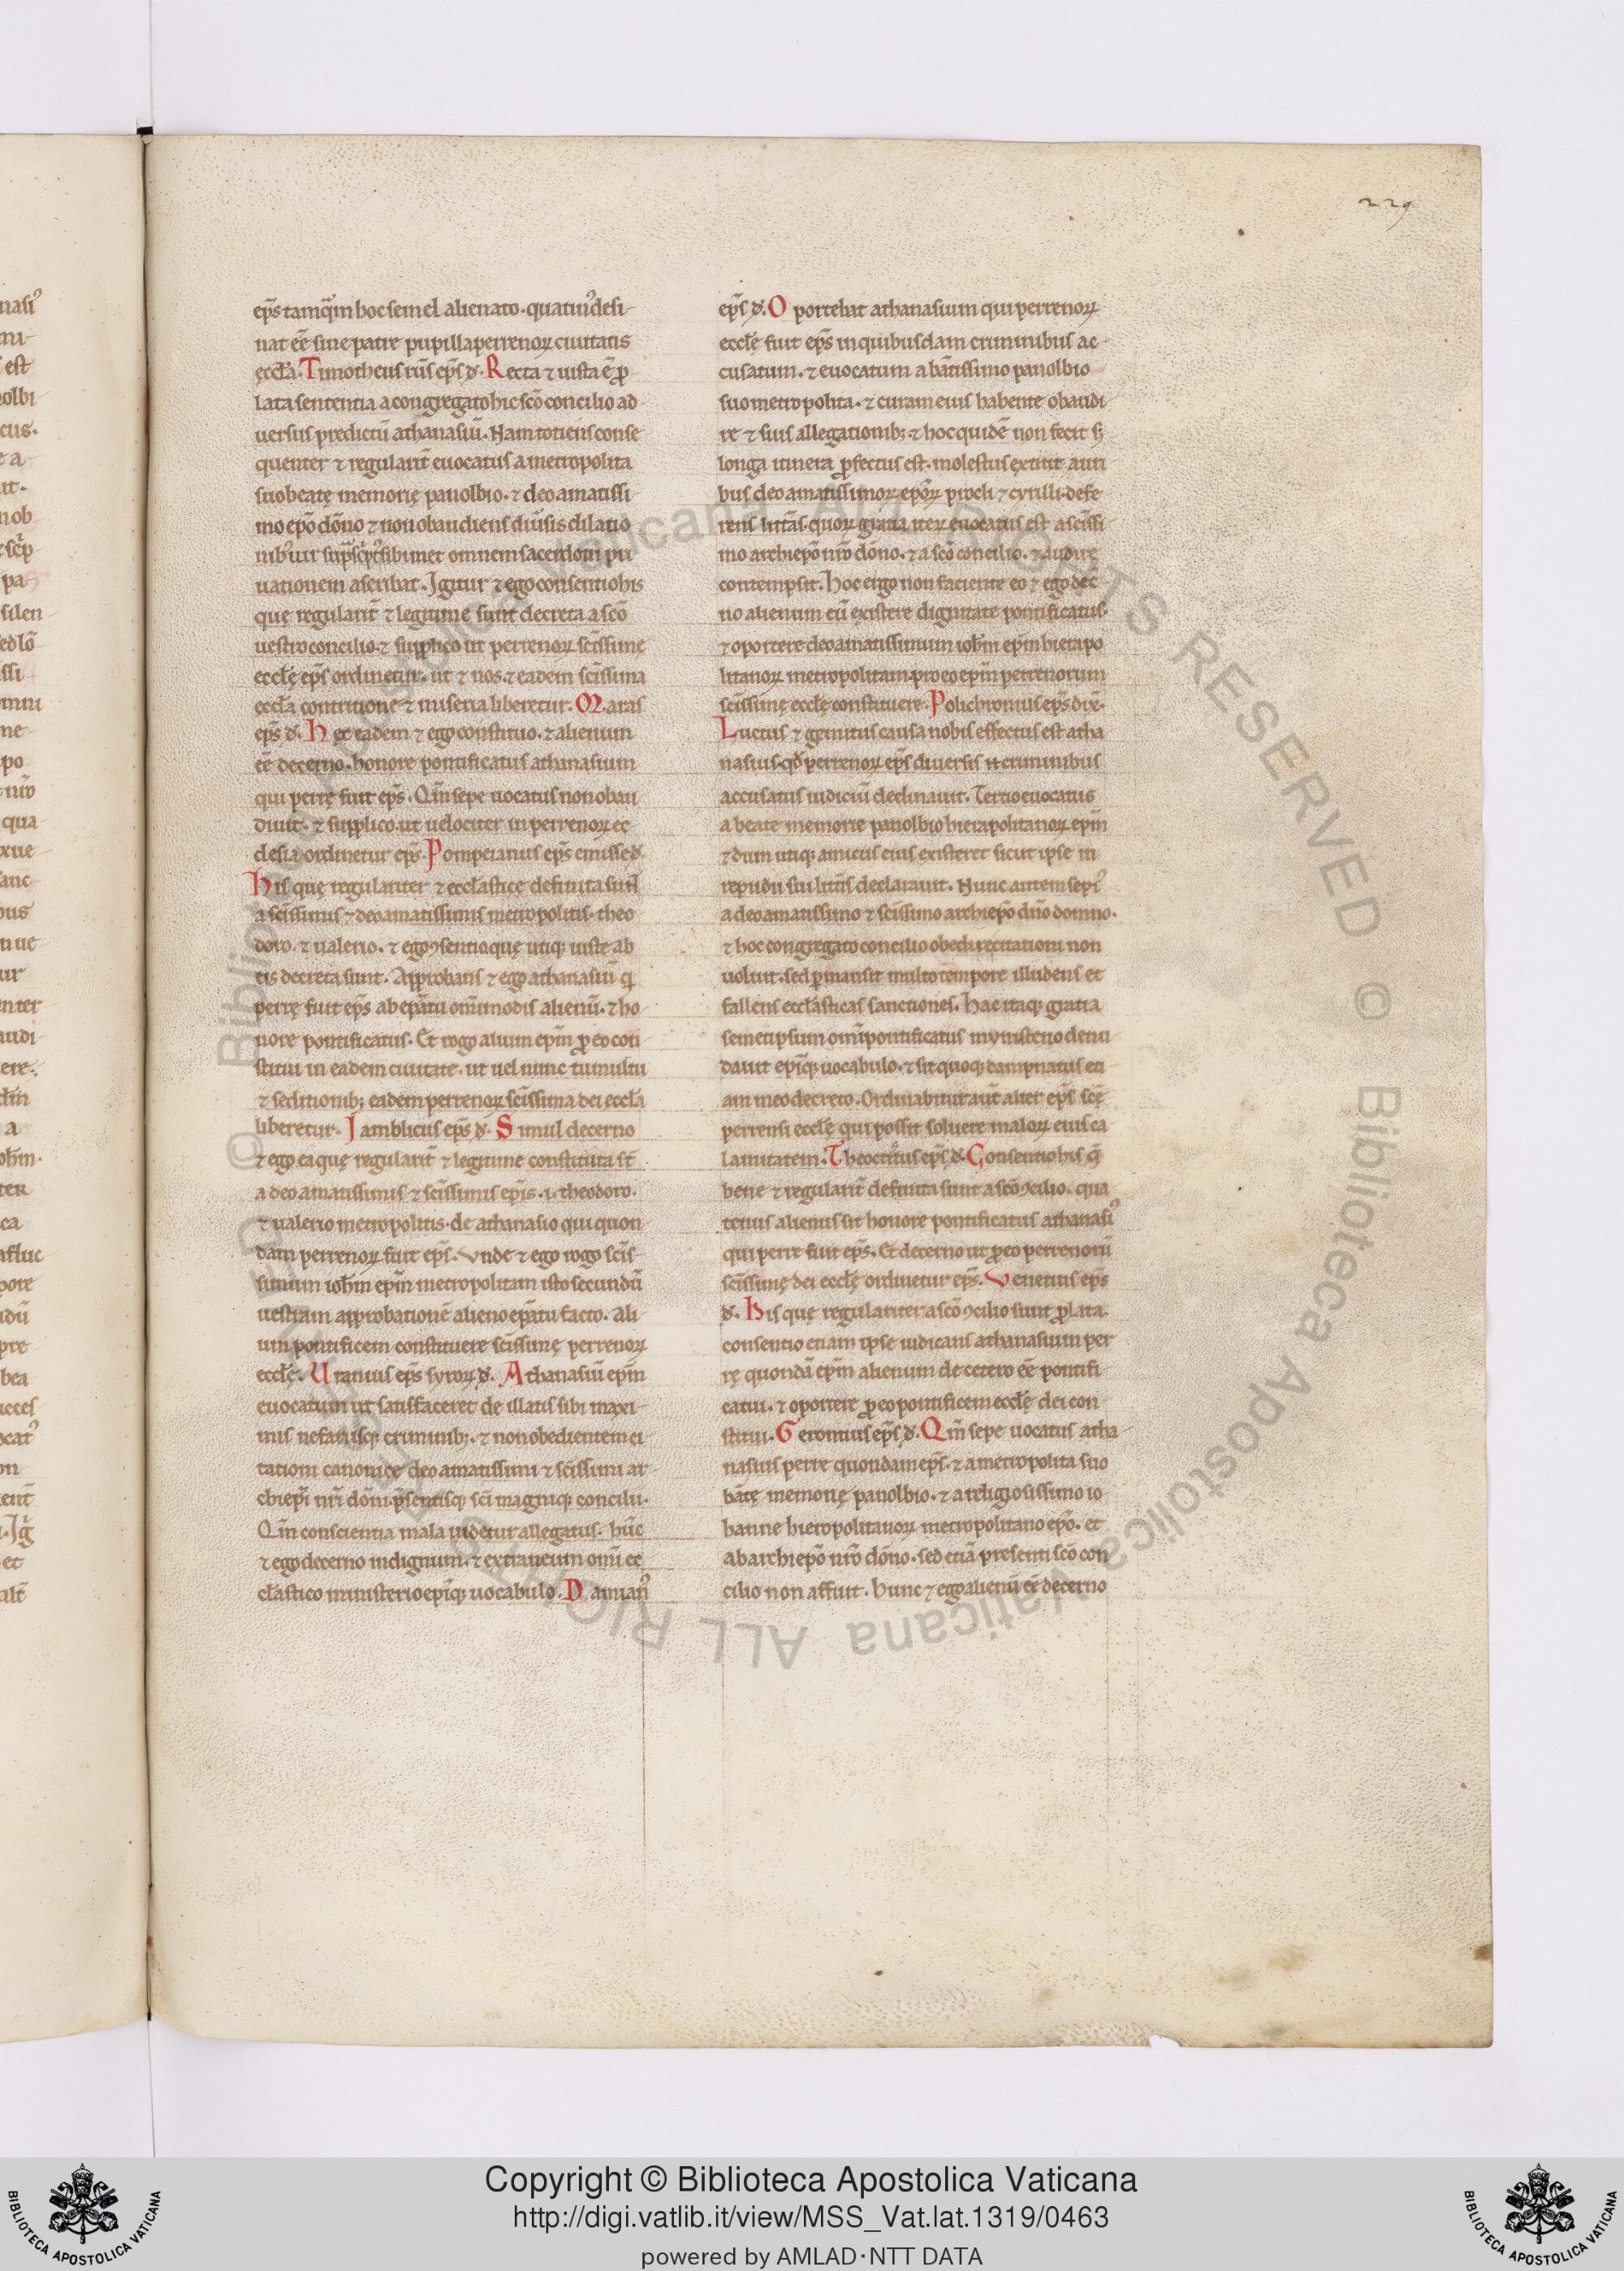 229
ep̃s tamq̃m hoc semel alienato. quatin᷒ desi
nat eẽ sine patre pupilla perrenoꝝ ciuitatis
ęccl̃a. Timotheus rũs ep̃s d̃. Recta ⁊ iusta ẽ ꝓ
lata sententia a congregato hic sc̃o concilio ad
uersus predictũ athanasiũ. Nam totiens conse
quenter ⁊ regularit̃ euocatus a metropolita
suo beatę memorię panolbio. ⁊ deo amatissi
mo ep̃o dõno ⁊ non obaudiens diũsis dilatio
uationem ascribat. Igitur ⁊ ego consentio his
quę regularit̃ ⁊ legitime sunt decreta a sc̃o
uestro concilio. ⁊ supplico ut perrenoꝝ sc̃issime
eccl̃ę ep̃s ordinetur. ut ⁊ nos. ⁊ eadem sc̃issima
ęccl̃a contritione ⁊ miseria liberetur. Maras
ep̃s d̃. Hęc eadem ⁊ ego constituo. ⁊ alienum
eẽ decerno. honore pontificatus athanasium
qui perrę fuit ep̃s. Qm̃ sepe uocatus non obau
diuit. ⁊ supplico. ut uelociter in perrenoꝝ ec
clesia ordinetur ep̃s. Pompeianus ep̃s emisse d̃.
His quę regulariter ⁊ eccl̃astice definita sunt
a sc̃issimis ⁊ deo amatissimis metropolitis. theo
doro. ⁊ ualerio. ⁊ ego ꝯsentio quę utiq; iuste ab
eis decreta sunt. Approbans ⁊ ego athanasiũ q̃
perrę fuit ep̃s ab ep̃atu om̃imodis alienũ. ⁊ ho
nore pontificatus. Et rogo alium ep̃m ꝓ eo con
stitui in eadem ciuitate. ut uel nunc tumultu
⁊ seditionib; eadem perrenoꝝ sc̃issima dei eccl̃a
liberetur. Iamblicus ep̃s d̃. Simul decerno
⁊ ego ea quę regularit̃ ⁊ legitime constituta st̃
a deo amatissimis ⁊ sc̃issimis ep̃is. i. theodoro.
⁊ ualerio metropolitis. de athanasio qui quon
dam perrenoꝝ fuit ep̃s. Vnde ⁊ ego rogo scĩs
simum ioh̃m ep̃m metropolitam isto secundũ
uestram approbationẽ alieno ep̃atu facto. ali
um pontificem constituere sc̃issimę perrenoꝝ
eccl̃ę. Uranius ep̃s syroꝝ d̃. Athanasiũ ep̃m
euocatum ut satisfaceret de illatis sibi maxi
mis nefariisq; criminib; ⁊ non obedientem ci
tationi canonicę deo amatissimi ⁊ sc̃issimi ar
chiep̃i nr̃i dõni. p̃sentisq; sc̃i magniq; concilii.
Qm̃ conscientia mala uidetur allegatus. hũc
⁊ ego decerno indignum. ⁊ extraneum omĩ ec
cl̃astico ministerio ep̃iq; uocabulo. Damian᷒
ep̃s d̃. Oportebat athanasium qui perrenoꝝ
eccl̃ę fuit ep̃s in quibusdam criminibus ac
cusatum. ⁊ euocatum a bãtissimo panolbio
suo metropolita. ⁊ curam eius habente obaudi
re ⁊ suis allegationib; ⁊ hoc quidẽ non fecit s;
longa itinera ꝓfectus est. molestus extitit auri
bus deo amatissimoꝝ ep̃oꝝ procli ⁊ cyrilli. defe
rens litt̃as. quoꝝ gratia iteꝝ euocatus est a sc̃issi
mo archiep̃o nr̃o dõno. ⁊ a sc̃o concilio. ⁊ audire
contempsit. Hoc ergo non faciente eo ⁊ ego dec̃
no alienum eũ existere dignitate pontificatus.
⁊ oportere deo amatissimum ioh̃m ep̃m hierapo
litanoꝝ metropolitam. pro eo ep̃m perrenorum
sc̃issimę eccl̃ę constituere. Polichronius ep̃s dix̃.
Luctus ⁊ gemitus causa nobis effectus est atha
nasius. qd̃ perrenoꝝ ep̃s diuersis criminibus
accusatus iudiciũ declinauit. Tertio euocatus
a beate memorie panolbio hierapolitanoꝝ ep̃m
⁊ dum utiq; amicus eius existeret sicut ipse in
repudii sui litt̃is declarauit. Nunc autem sepi᷒
a deo amatissimo ⁊ sc̃issimo archiep̃o dño domno.
⁊ hoc congregato concilio obedire citationi non
uoluit. sed ꝑmansit multo tempore illudens et
fallens eccl̃asticas sanctiones. Hac itaq; gratia
semetipsum omĩ pontificatus mynisterio denu
dauit ep̃iq; uocabulo. ⁊ sit quoq; dampnatus eti
am meo decreto. Ordinabitur aut̃ alter ep̃s scẽ
perrensi eccl̃ę qui possit soluere maloꝝ eius ca
lamitatem. Theoctistus ep̃s d̃. Consentio his q̃
bene ⁊ regularit̃ definita sunt a sc̃o ꝯcilio. qua
tenus alienus sit honore pontificatus athanasi᷒
qui perre fuit ep̃s. Et decerno ut ꝓ eo perrenorũ
sc̃issimę dei eccl̃ę ordinetur ep̃s. Venetius ep̃s
d̃. His que regulariter a sc̃o ꝯcilio sunt ꝓlata.
consentio etiam ipse iudicans athanasium per
rę quondã ep̃m alienum de cetero eẽ pontifi
catui. ⁊ oportere ꝓ eo pontificem eccl̃ę dei con
stitui. Gerontius ep̃s d̃. Qm̃ sepe uocatus atha
nasius perre quondam ep̃s. ⁊ a metropolita suo
bãtę memorię panolbio. ⁊ a religiosissimo io
hanne hieropolitanoꝝ metropolitano ep̃o. et
ab archiep̃o nr̃o dõno. sed etiã presenti sc̃o con
cilio non affuit. hunc ⁊ ego alienũ eẽ decerno
© Biblioteca Apostolica Vaticana ALL RIGHTS RESERVED
Copyright © Biblioteca Apostolica Vaticana
http://digi.vatlib.it/view/MSS_Vat.lat.1319/0463
powered by AMLAD·NTT DATA
BIBLIOTECA APOSTOLICA VATICANA
BIBLIOTECA APOSTOLICA VATICANA